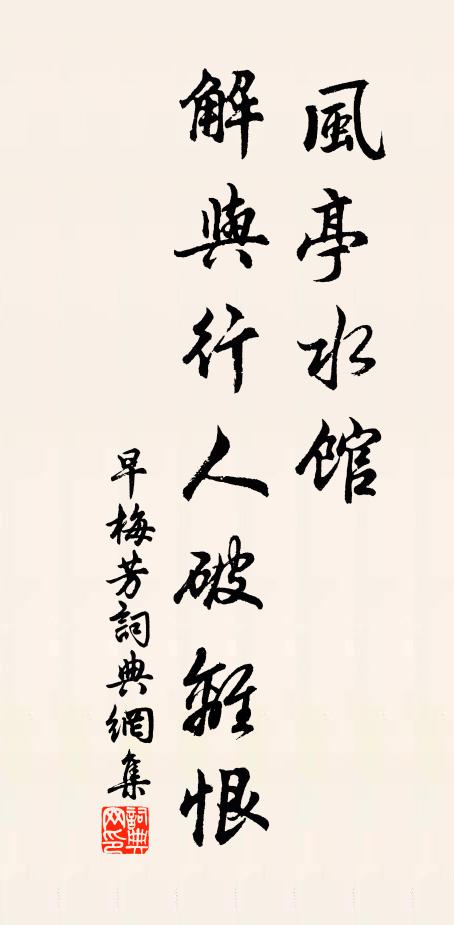 風亭水館
解與行人破離恨
早梅芳詞典網集